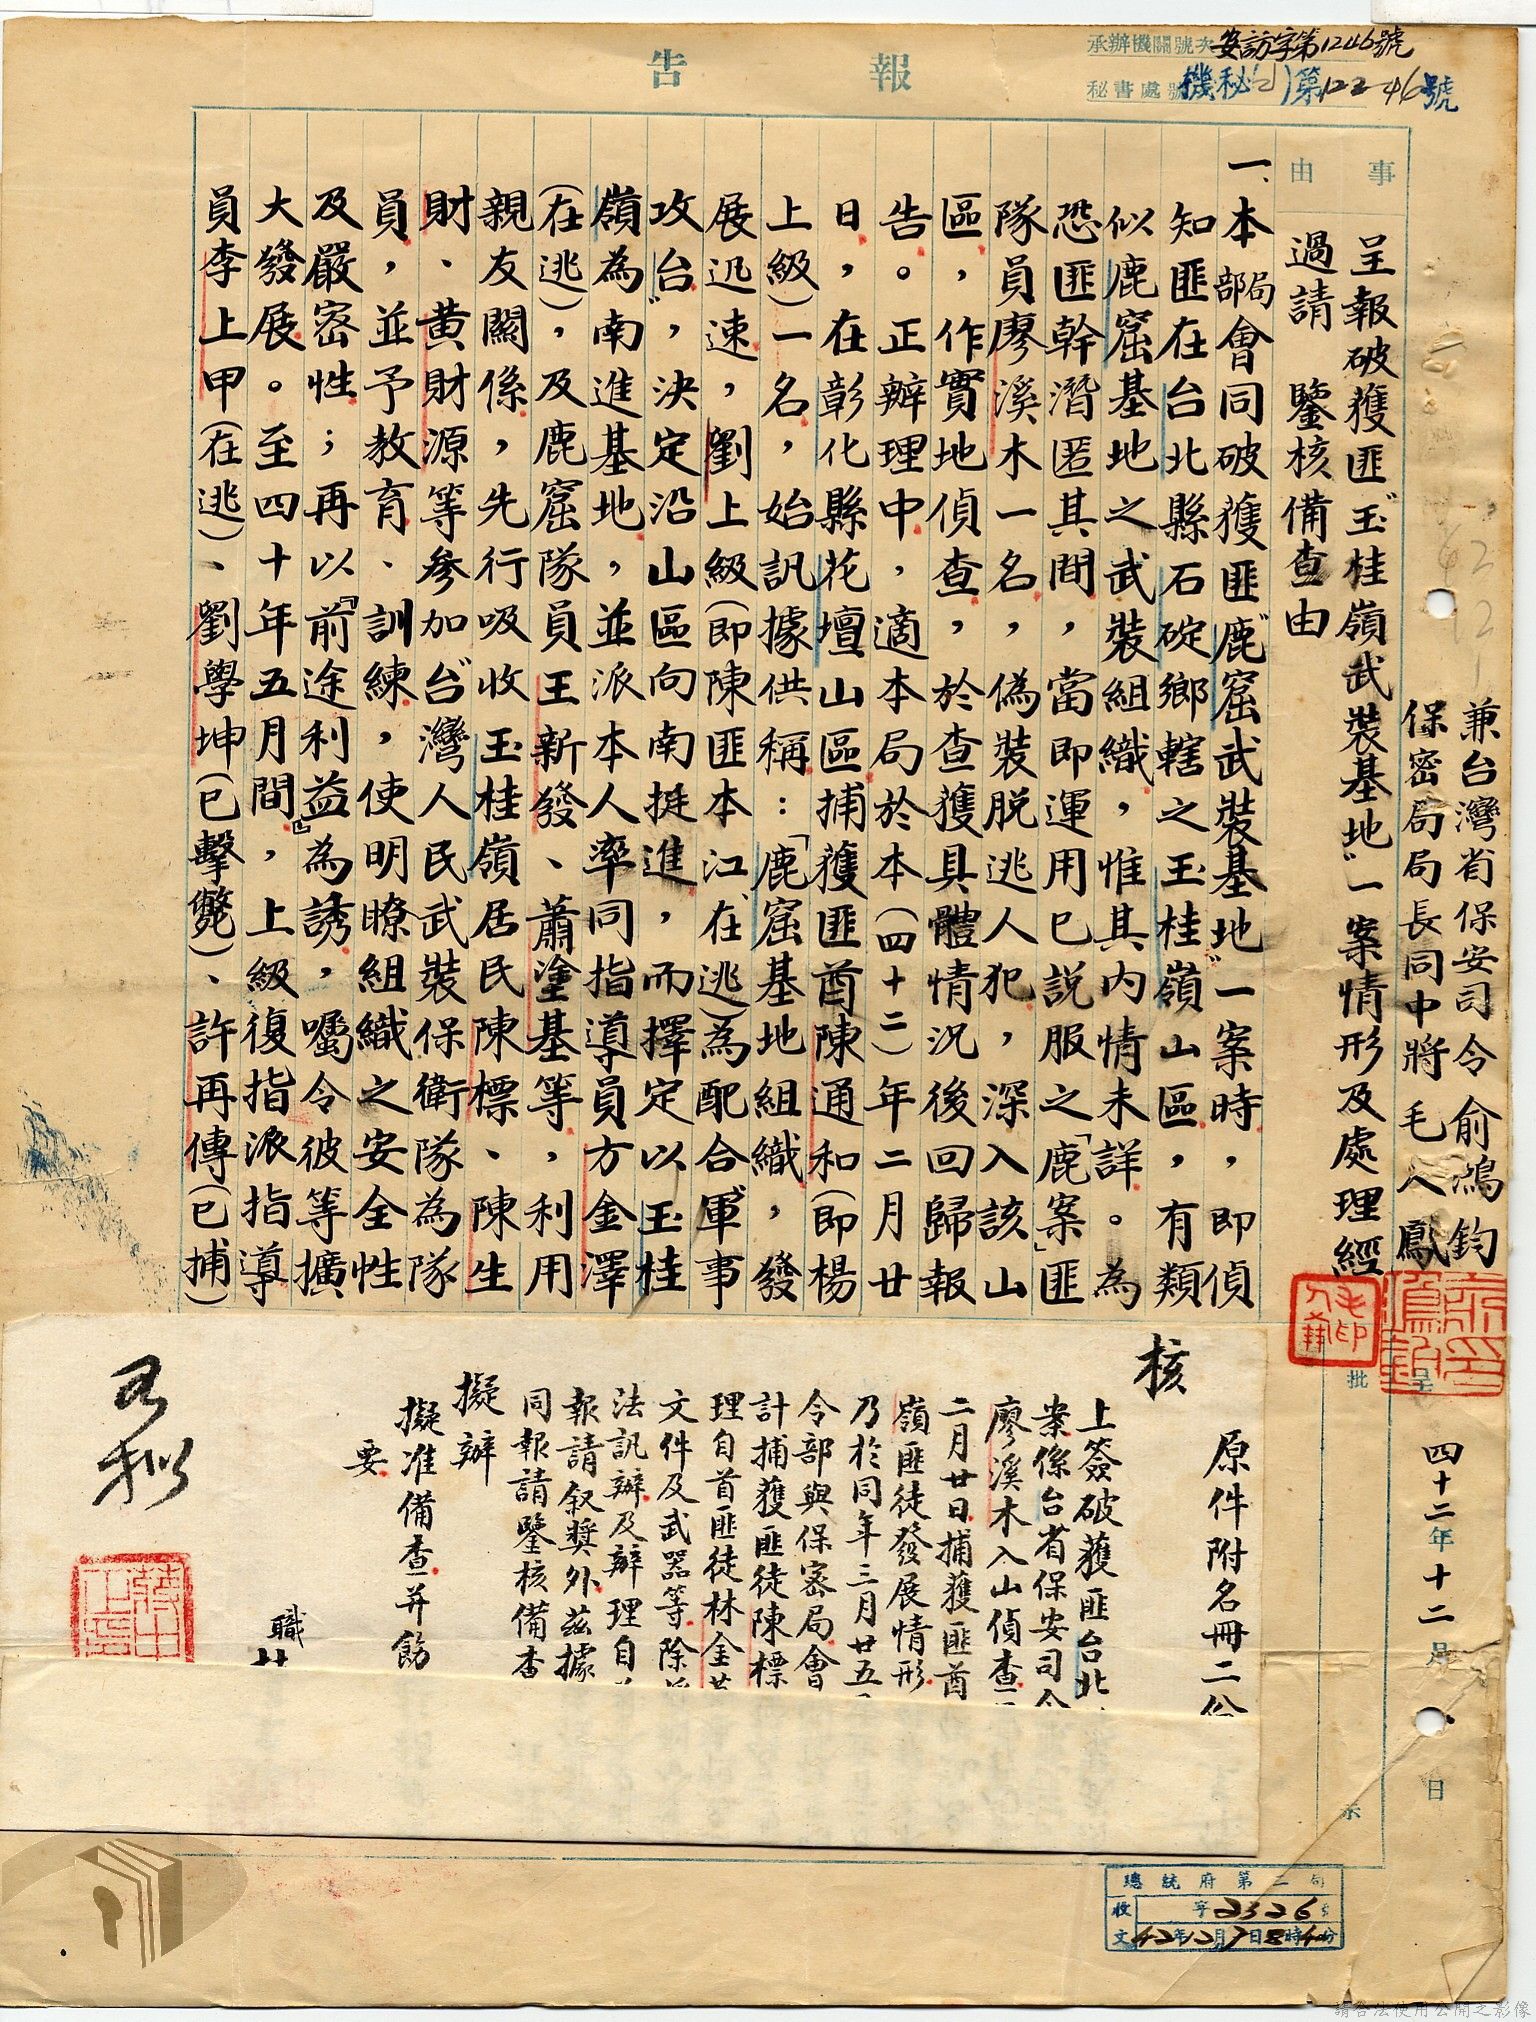 報告
承辦機關號次 安訪字第1246號
秘書處號 機秘(乙)第122-46號
兼台灣省保安司令 俞鴻鈞
保密局局長同中將 毛人鳳
呈
四十二年十二月 日
事由
呈報破獲匪"玉桂嶺武裝基地"一案情形及處理經
過請 鑒核備查由
批示
一、本部局會同破獲匪"鹿窟武裝基地"一案時，即偵
知匪在台北縣石碇鄉轄之玉桂嶺山區，有類
似鹿窟基地之武裝組織，惟其內情未詳。為
恐匪幹潛匿其間，當即運用已說服之「鹿案」匪
隊員廖溪木一名，偽裝脫逃人犯，深入該山
區，作實地偵查，於查獲具體情況後回歸報
告。正辦理中，適本局於本(四十二)年二月廿
日，在彰化縣花壇山區捕獲匪酋陳通和(即楊
上級)一名，始訊據供稱：「鹿窟基地組織，發
展迅速，劉上級(即陳匪本江、在逃)為配合"軍事
攻台"，決定沿山區向南挺進，而擇定以玉桂
嶺為南進基地，並派本人率同指導員方金澤
(在逃)，及鹿窟隊員王新發、蕭塗基等，利用
親友關係，先行吸收玉桂嶺居民陳標、陳生
財、黃財源等參加"台灣人民武裝保衛隊為隊
員，並予教育、訓練，使明瞭組織之安全性
及嚴密性；再以『前途利益』為誘，囑令彼等擴
大發展。至四十年五月間，上級復指派指導
員李上甲(在逃)、劉學坤(已擊斃)、許再傳(已捕)
核
原件附名冊二份
上簽破獲匪台北
案係台省保安司令
廖溪木入山偵查
二月廿日捕獲匪酋
嶺匪徒發展情形
乃於同年三月廿五
令部與保密局會
計捕獲匪徒陳標
理自首匪徒林金
文件及武器等除
法訊辦及辦理自
報請敘獎外茲據
同報請鑒核備查
擬辦
擬准備查并飭
要
職
總統府第二局
收文 字2326號
42年12月7日8時40分
請合法使用公開之影像